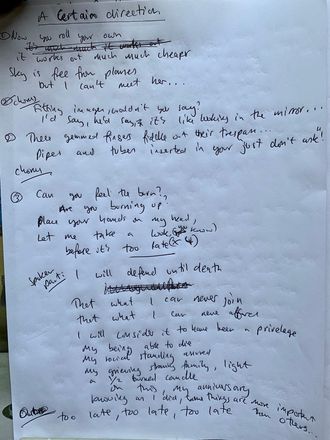 A Certain direction
① Now you roll your own
it works out much much cheaper
Sky is free from planes
but I can't meet her...
Chorus
Fitting image, wouldn't you say?
I'd say, he'd say, it's like looking in the mirror...
② These gemmed fingers fiddle out their trespass...
Pipes and tubes inserted in your just don't ask"
chorus
③ Can you feel the burn?,
Are you burning up?
Place your hands on my head,
Let me take a look (you know)
before it's too late (x 4)
Spoken part: I will defend until death
That what I can never join
That what I can never
I will consider it to have been a privelege
My being able to die
My social standing
My grieving starving family, light
a ½ burned candle
On this, my anniversary
knowing as I did, some things are more important than others...
Outro too late, too late, too late